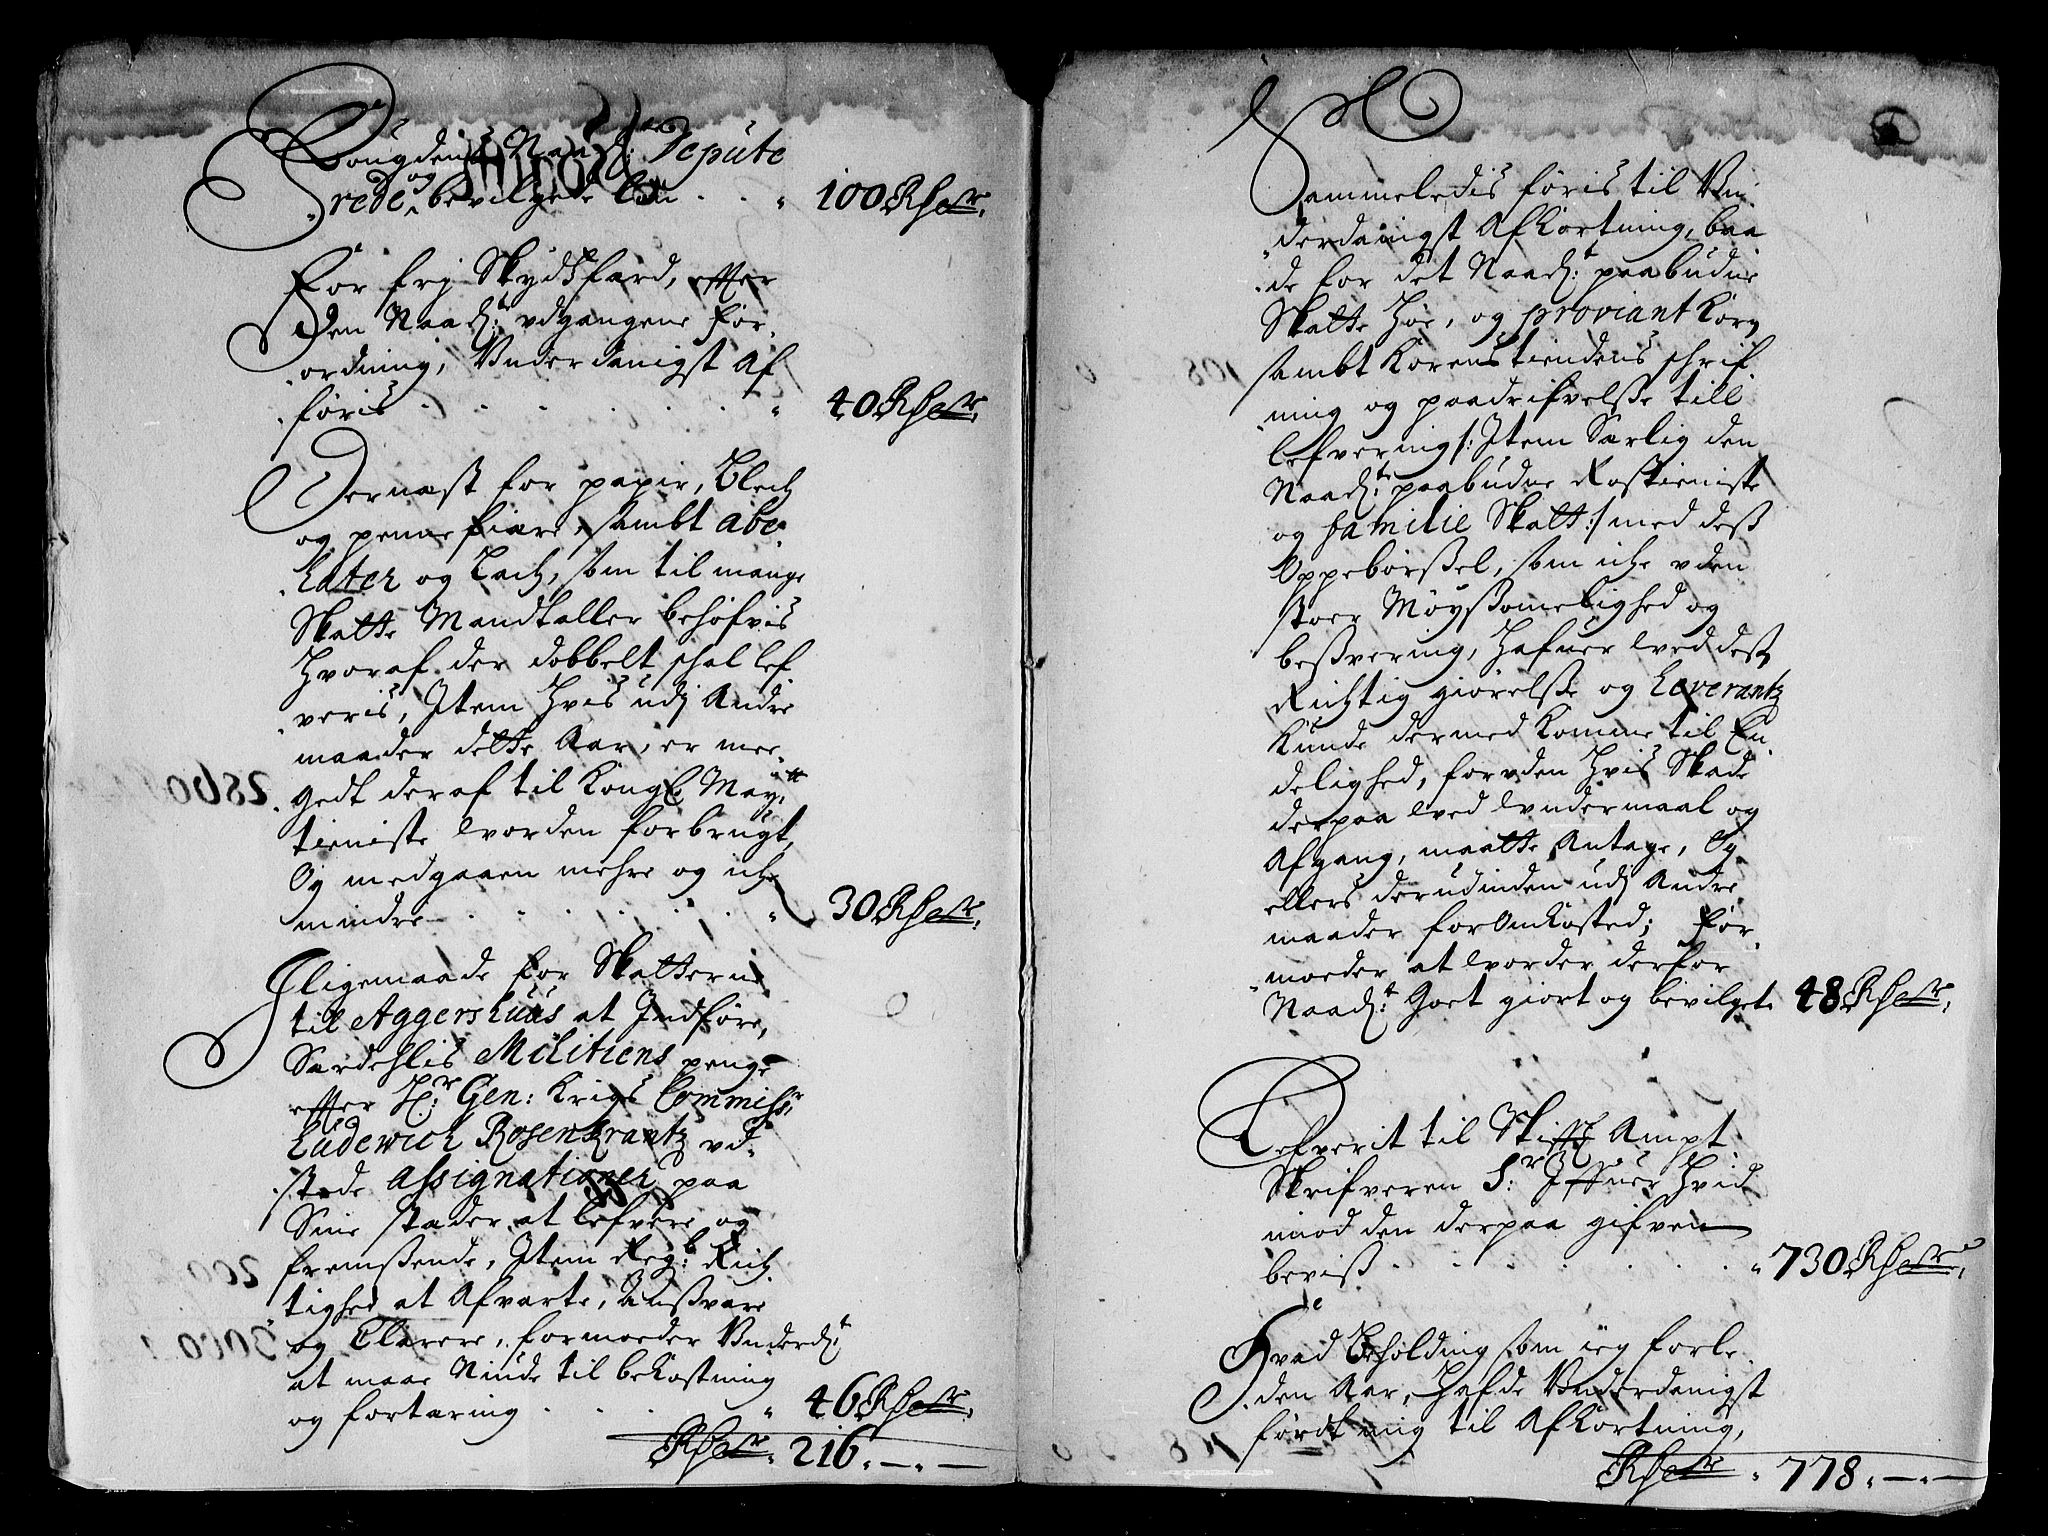 Fougdens Naad: Depute
rede og bevilgede lön . . . 100 Rdr.
For frj Skydsfærd, effter
den Naad:t udgangene For
ordning, Underdanigst Af
föris . . . . . . 40 Rdr.
Dernæst for papir, Blech
og penne fiære, sambt abc
Later og Lach, som til mange
Skatte Mandtaller behöfvis
Hvoraf der dobbelt schal lef
veris, Jtem Hvis udj Andre
maader dette Aar, er mee
gedt deraf til Kongl May:tt
tieniste worden forbrugt,
Og medgaaen mehre og iche
mindre . . . . . . 30 Rdr.
Jligemaade for Skatterne
til Aggershuus at Jndföre,
Særdehlis Militiens penge
effter Hr: Gen: Krigs Commiss:r
Ludewich Rosenkrantz ud
stede Assignationer paa
Sine stæder at lefvere og
fremßende, Jtem Regb: Rich
tighed at Afvarte, Anßvare
og Clarere, formoeder Underd:t
at maae Niude til bekostning
og fortæring . . . . 46 Rdr.
Rdr. 216. — . —
Sammeledis föris til Un
derdanigst Afkortning, baa
de for det Naad:t paabudne
Skatte Höe, og proviant Korn
sambt Korenstiendens schrif
ning og paadrifvelße till
lefvering /: Jtem Særlig den
Naad:te paabudne Rostieniste
og familie Skatt :/ med deß
Oppebörßel, som iche uden
stoer Möyßomelighed og
beßvering, Hafuer wed desz
Richtig giörelße og Leverantz
Kunde dermed Komme til En
delighed, foruden Hvis Skade
derpaa wed wndermaal og
Afgang, maatte Antage, Og
ellers derudinden udj Andre
maader for Omkosted; For
moeder at worder derfor
Naad:t Goet giort og bevilget. 48 Rdr.
Lefverit til Skiffz Ampt
Skrifveren Sr: Jffuer Hvid
imod den derpaa gifven
beviß . . . . . . . 730 Rdr.
Hvad Beholding som ieg forle
den Aar, Hafde Underdanigst
fördt mig til Afkortning,
Rdr. 778. — . —